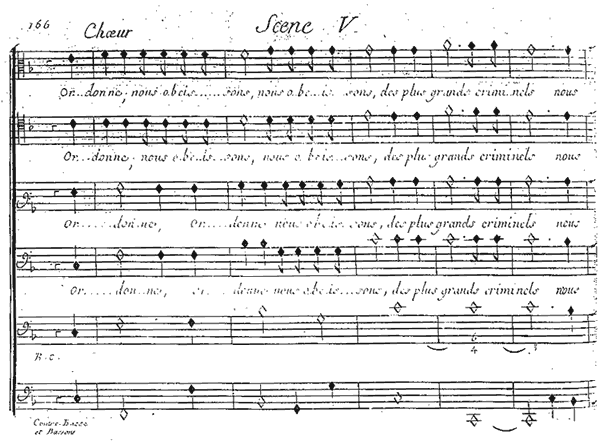 166 Chœur Scene V
Or..donne, nous obeis......sons, nous o.be..is...sons, des plus grands criminels nous
Or..donne, nous o.be..is..sons, nous o.beis...sons, des plus grands criminels nous
Or.....don..ne, Or....donne nous obeis..sons, des plus grands criminels nous
Or......don..nes, or.....donne nous o.be.is...sons, des plus grands criminels nous
6
4 3
B. C.
Contre-Basse
et Bassons